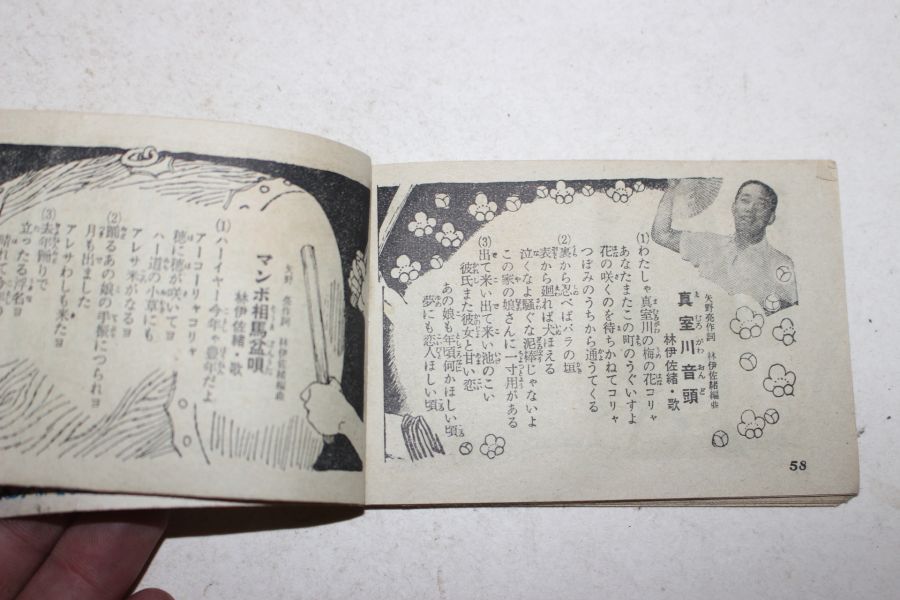 真室川音頭
矢野亮作詞 林伊佐緒編曲
林伊佐緒・歌
(1)わたしゃ真室川の梅の花コリャ
あなたまたこの町のうぐいすよ
花の咲くのを待ちかねてコリャ
つぼみのうちから通うてくる
(2)裏から忍べばバラの垣
表から廻れば犬ほえる
泣くなよ騒ぐな泥棒じゃないよ
この家の娘さんに一寸用がある
(3)出て来い出て来い池のこい
彼氏また彼女と甘い恋
あの娘も年頃何かほしい頃
夢にも恋人ほしい頃
58
マンボ相馬盆唄
矢野 亮作詞 林伊佐緒編曲
林伊佐緒・歌
(1)ハーイヤー今年ゃ豊年だよ
アーコーリャコリャ
穂に穂が咲いてヨ
ハー道の小草にも
アレサ米がなるヨ
(2)踊るあの娘の手振につられヨ
月も出ました
アレサわしも来たヨ
(3)去年踊りで
立ったる浮名ヨ
晴れて